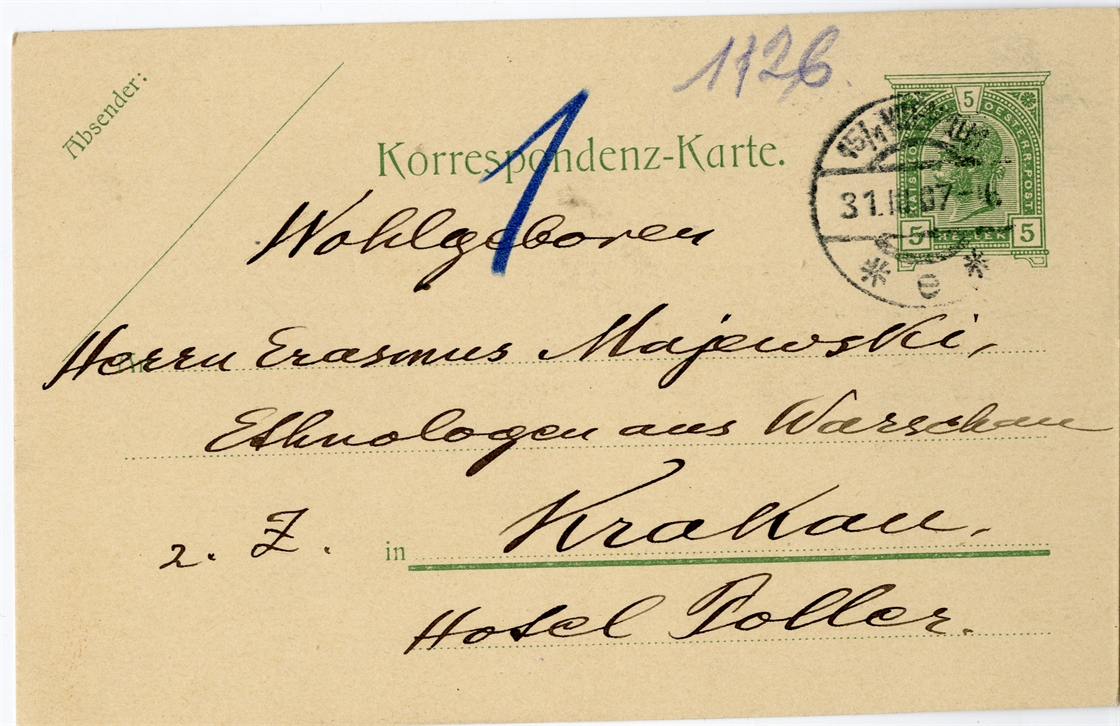 1126.
Absender:
Korrespondenz-Karte.
1
5
KAIS. KÖN. OESTERR. POST
5 HELLER 5
15/1 WIEN
31.III.07
e
Wohlgeboren
Herrn Erasmus Majewski,
Ethnologen aus Warschau
z. Z. in Krakau,
Hotel Poller.